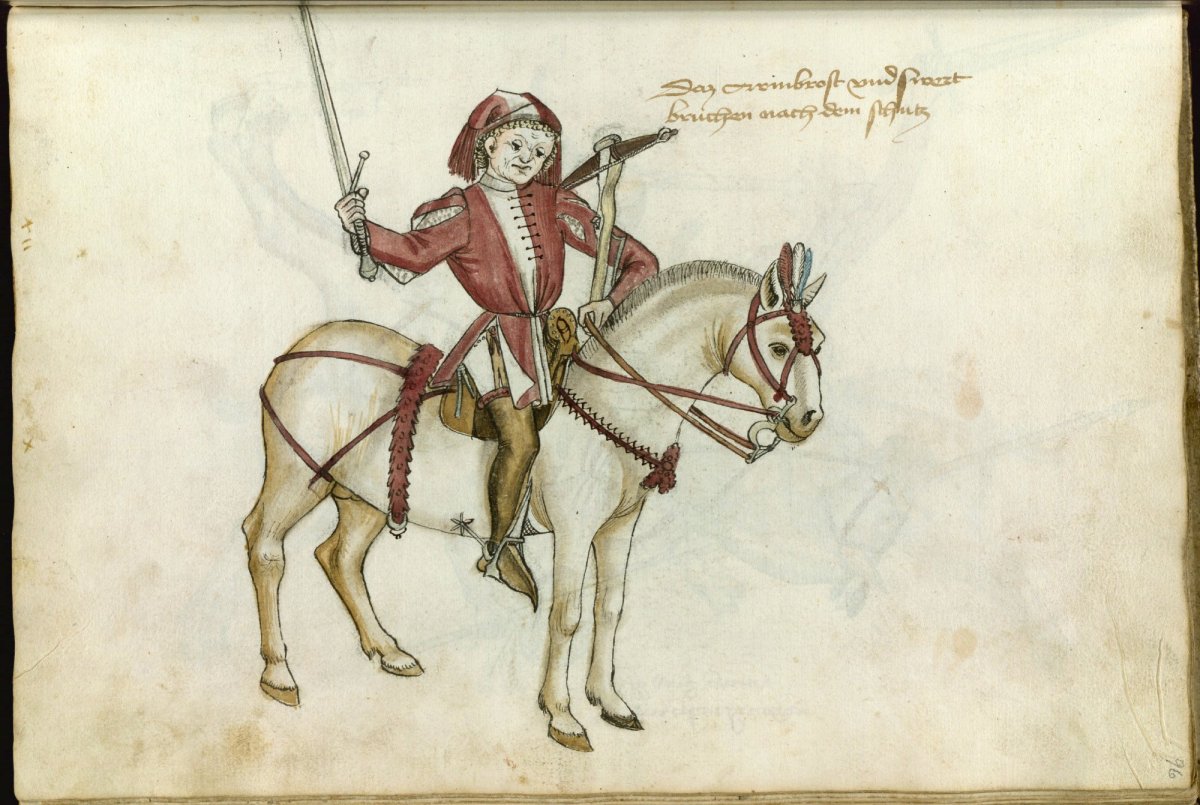 Daz Armbrost vnd swert
bruchen nach dem schutz
96